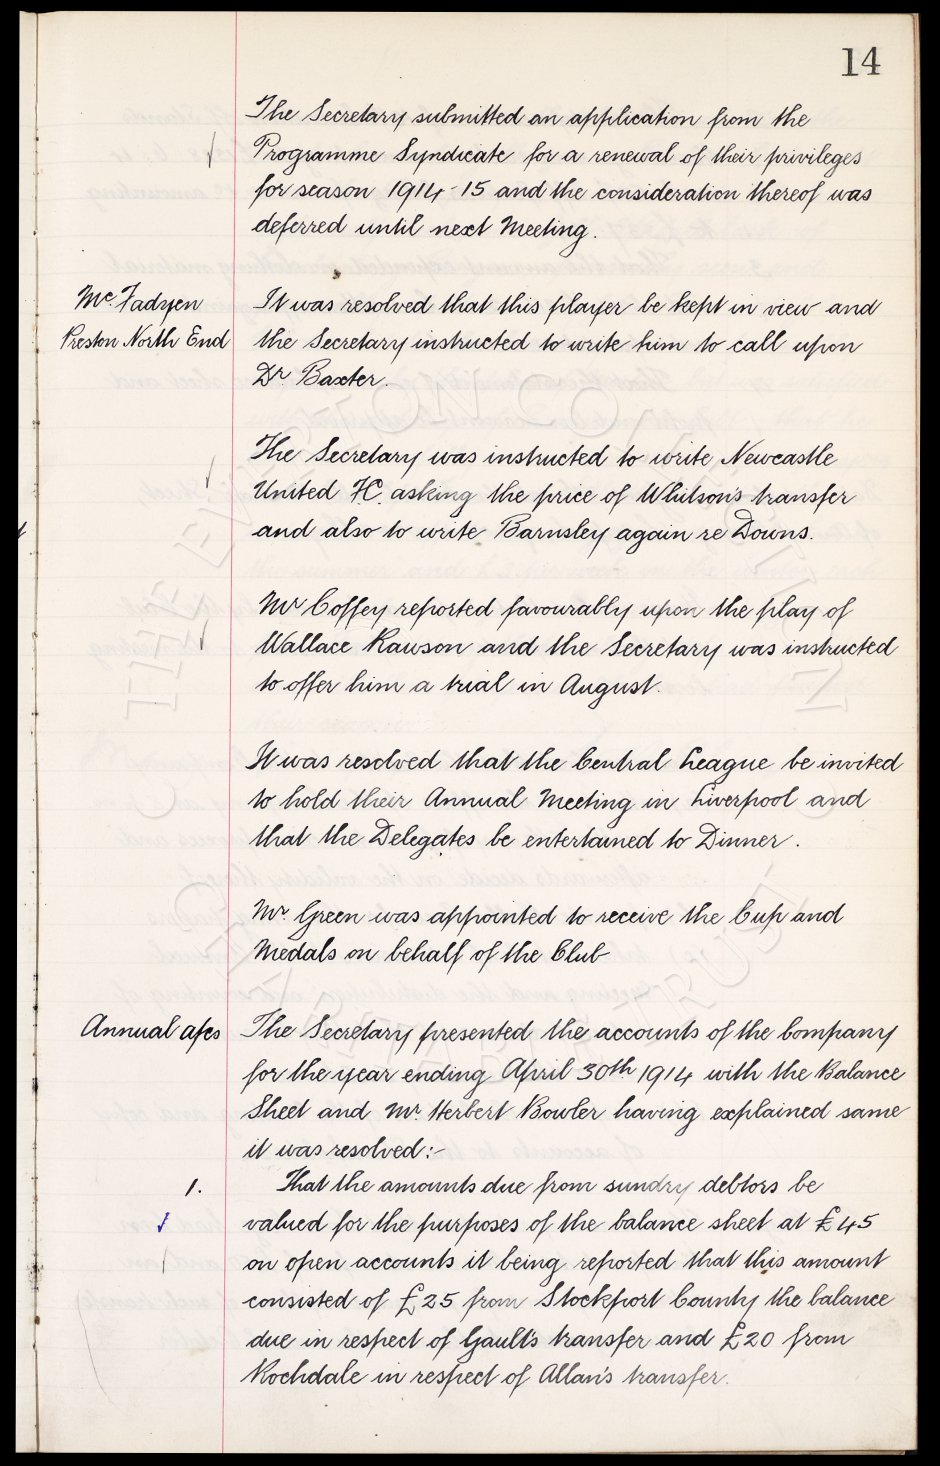 14
The Secretary submitted an application from the
Programme Syndicate for a renewal of their privileges
for season 1914-15 and the consideration thereof was
deferred until next Meeting.
Mc. Fadyen
Preston North End
It was resolved that this player be kept in view and
the Secretary instructed to write him to call upon
Dr Baxter.
The Secretary was instructed to write Newcastle
United FC. asking the price of Whitson's transfer
and also to write Barnsley again re Downs.
Mr Coffey reported favourably upon the play of
Wallace Rawson and the Secretary was instructed
to offer him a trial in August.
It was resolved that the Central League be invited
to hold their Annual Meeting in Liverpool and
that the Delegates be entertained to Dinner.
Mr. Green was appointed to receive the Cup and
Medals on behalf of the Club
Annual a/cs
The Secretary presented the accounts of the Company
for the year ending April 30th 1914 with the Balance
Sheet and Mr. Herbert Bowler having explained same
it was resolved:-
1.
That the amounts due from sundry debtors be
valued for the purposes of the balance sheet at £45
on open accounts it being reported that this amount
consisted of £25 from Stockport County the balance
due in respect of Gault's transfer and £20 from
Rochdale in respect of Allan's transfer.